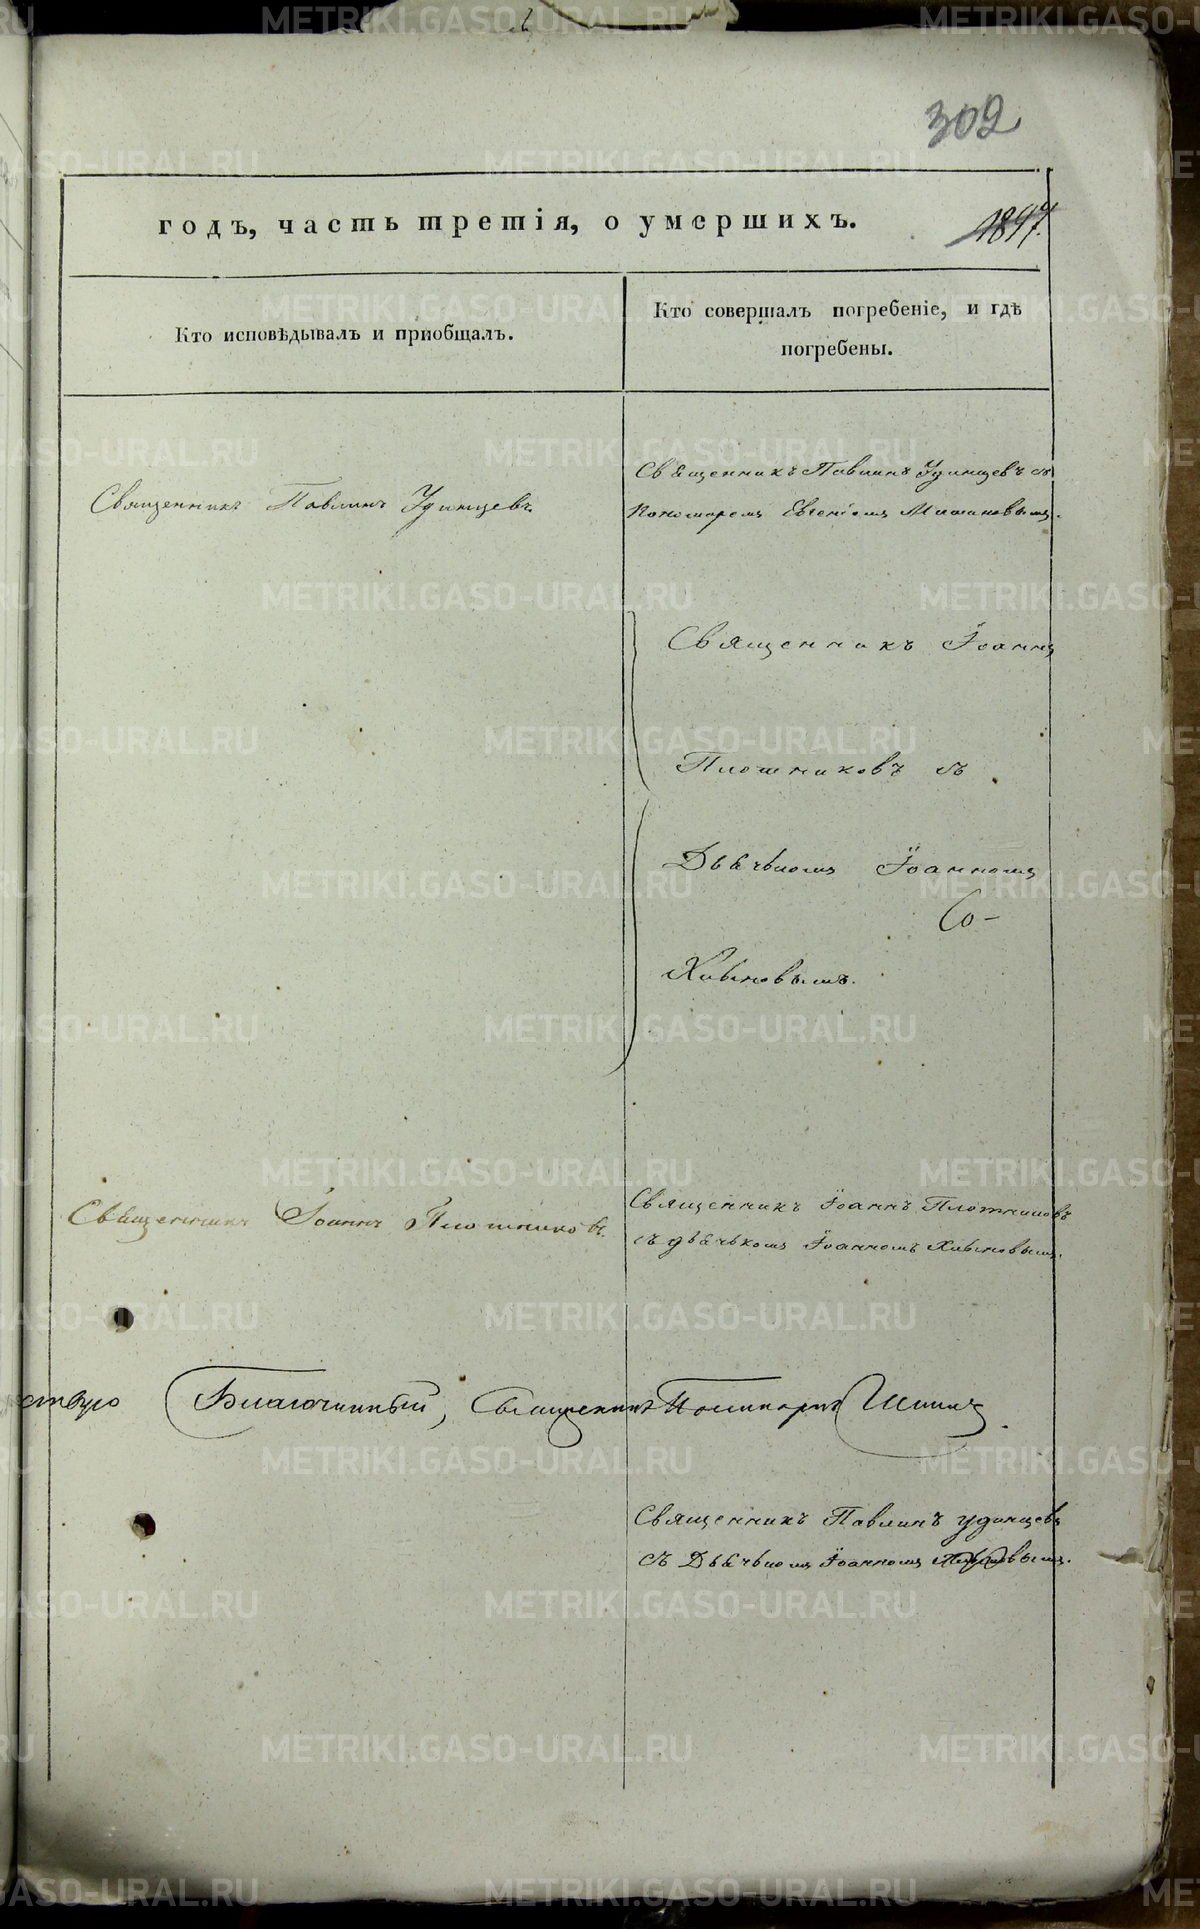 302
годъ, часть третія, о умершихъ.
1847.
Кто исповѣдывалъ и приобщалъ.
Кто совершалъ погребеніе, и гдѣ
погребены.
Священникъ Павлинъ Удинцевъ съ
Священникъ Павлинъ Удинцевъ.
Пономаремъ Евгеніемъ
Священникъ Іоаннъ
Плотниковъ съ
Дьячькомъ Іоанномъ
Со-
Хлыновымъ.
Священникъ Іоаннъ Плотниковъ
Священникъ Іоаннъ Плотниковъ.
съ дьячькомъ Іоанномъ Хлыновымъ.
Благочинный, Священникъ
Священникъ Павлинъ Удинцевъ
съ Дьячькомъ Іоанномъ Хлыновымъ.
METRIKI.GASO-URAL.RU